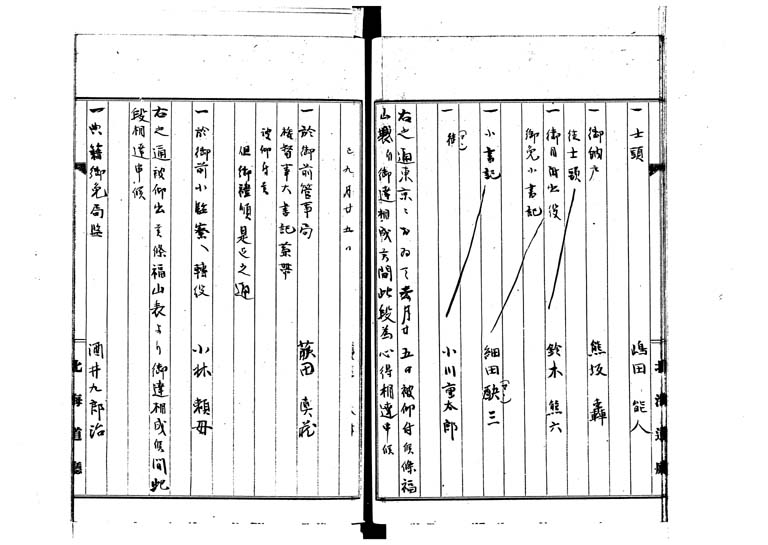 一士頭　嶋田　能人
一御納戸　熊坂　轟
徒士頭
一御目附出役　鈴木　熊六
御免小書記
一小書記　細田　三
一　小川重太郎
右之通東京ニ　去月廿五日被仰付候條福
山表より御達相成候間此段為心得相達申候
九月廿五日
一於御前管事局　藤田　真蔵
被仰付
但御禮順是迄之通
一於御前小監察へ轉役　小林　頼母
右之通被仰出候條福山表より御達相成候間此
段相達申候
一典籍御免局監　酒井九郎治
北海道廳
北海道廳